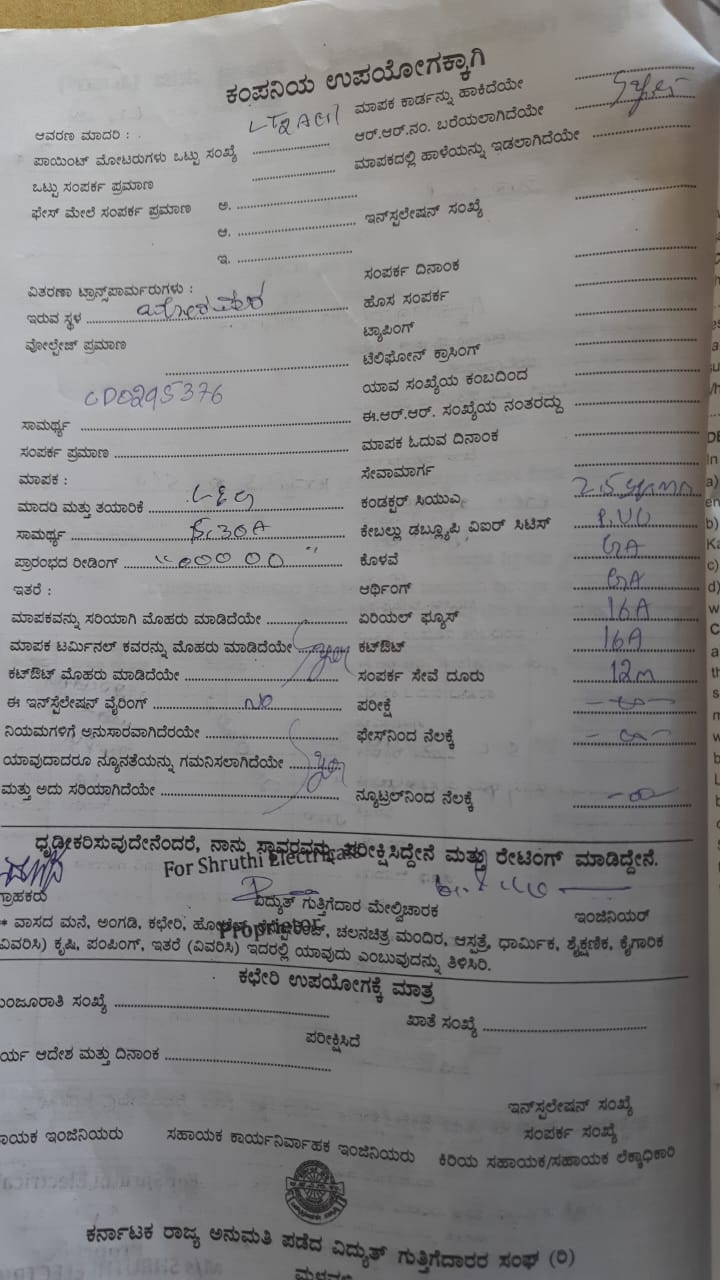 ಕಂಪನಿಯ ಉಪಯೋಗಕ್ಕಾಗಿ
ಆವರಣ ಮಾದರಿ :
ಮಾಪಕ ಕಾರ್ಡನ್ನು ಹಾಕಿದೆಯೇ
ಪಾಯಿಂಟ್ ಮೋಟರುಗಳು ಒಟ್ಟು ಸಂಖ್ಯೆ
ಆರ್.ಆರ್.ನಂ. ಬರೆಯಲಾಗಿದೆಯೇ
ಒಟ್ಟು ಸಂಪರ್ಕ ಪ್ರಮಾಣ
ಮಾಪಕದಲ್ಲಿ ಹಾಳೆಯನ್ನು ಇಡಲಾಗಿದೆಯೇ
ಫೇಸ್ ಮೇಲೆ ಸಂಪರ್ಕ ಪ್ರಮಾಣ ಅ.
ಆ. ಇನ್‌ಸ್ಪಲೇಷನ್ ಸಂಖ್ಯೆ
ಇ.
ಸಂಪರ್ಕ ದಿನಾಂಕ
ವಿತರಣಾ ಟ್ರಾನ್ಸ್‌ಪಾರ್ಮರುಗಳು :
ಇರುವ ಸ್ಥಳ
ಹೊಸ ಸಂಪರ್ಕ
ಟ್ಯಾಪಿಂಗ್
ವೋಲ್ಟೇಜ್ ಪ್ರಮಾಣ
ಟೆಲಿಫೋನ್ ಕ್ರಾಸಿಂಗ್
ಯಾವ ಸಂಖ್ಯೆಯ ಕಂಬದಿಂದ
CD0295376
ಸಾಮರ್ಥ್ಯ
ಈ.ಆರ್.ಆರ್. ಸಂಖ್ಯೆಯ ನಂತರದ್ದು
ಸಂಪರ್ಕ ಪ್ರಮಾಣ
ಮಾಪಕ ಓದುವ ದಿನಾಂಕ
ಮಾಪಕ :
ಸೇವಾಮಾರ್ಗ
ಮಾದರಿ ಮತ್ತು ತಯಾರಿಕೆ L&G
ಕಂಡಕ್ಟರ್ ಸಿಯುಎ 2.5 sqmm
ಸಾಮರ್ಥ್ಯ 5-30A
ಕೇಬಲ್ಲು ಡಬ್ಲ್ಯೂಪಿ ವಿಐರ್ ಸಿಟಿಸ್ P.VC
ಪ್ರಾರಂಭದ ರೀಡಿಂಗ್ "00000"
ಕೊಳವೆ GA
ಇತರೆ :
ಆರ್ಥಿಂಗ್ GA
ಮಾಪಕವನ್ನು ಸರಿಯಾಗಿ ಮೊಹರು ಮಾಡಿದೆಯೇ
ಏರಿಯಲ್ ಫ್ಯೂಸ್ 16A
ಮಾಪಕ ಟರ್ಮಿನಲ್ ಕವರನ್ನು ಮೊಹರು ಮಾಡಿದೆಯೇ
ಕಟ್‌ಔಟ್ 16A
ಕಟ್‌ಔಟ್ ಮೊಹರು ಮಾಡಿದೆಯೇ
ಸಂಪರ್ಕ ಸೇವೆ ದೂರು 12m
ಈ ಇನ್‌ಸ್ಪಲೇಷನ್ ವೈರಿಂಗ್ NO
ಪರೀಕ್ಷೆ
ನಿಯಮಗಳಿಗೆ ಅನುಸಾರವಾಗಿದೆರಯೇ
ಫೇಸ್‌ನಿಂದ ನೆಲಕ್ಕೆ
ಯಾವುದಾದರೂ ನ್ಯೂನತೆಯನ್ನು ಗಮನಿಸಲಾಗಿದೆಯೇ
ಮತ್ತು ಅದು ಸರಿಯಾಗಿದೆಯೇ
ನ್ಯೂಟ್ರಲ್‌ನಿಂದ ನೆಲಕ್ಕೆ
ಧೃಢೀಕರಿಸುವುದೇನೆಂದರೆ, ನಾನು ಸ್ಥಾವರವನ್ನು ಪರೀಕ್ಷಿಸಿದ್ದೇನೆ ಮತ್ತು ರೇಟಿಂಗ್ ಮಾಡಿದ್ದೇನೆ.
For Shruthi Electricals
ಗ್ರಾಹಕರು
ವಿದ್ಯುತ್ ಗುತ್ತಿಗೆದಾರ ಮೇಲ್ವಿಚಾರಕ
ಇಂಜಿನಿಯರ್
Proprietor
* ವಾಸದ ಮನೆ, ಅಂಗಡಿ, ಕಛೇರಿ, ಹೋಟೆಲ್, ರೆಸ್ಟೋರೆಂಟ್, ಚಲನಚಿತ್ರ ಮಂದಿರ, ಆಸ್ಪತ್ರೆ, ಧಾರ್ಮಿಕ, ಶೈಕ್ಷಣಿಕ, ಕೈಗಾರಿಕ
(ವಿವರಿಸಿ) ಕೃಷಿ, ಪಂಪಿಂಗ್, ಇತರೆ (ವಿವರಿಸಿ) ಇದರಲ್ಲಿ ಯಾವುದು ಎಂಬುವುದನ್ನು ತಿಳಿಸಿರಿ.
ಕಛೇರಿ ಉಪಯೋಗಕ್ಕೆ ಮಾತ್ರ
ಮಂಜೂರಾತಿ ಸಂಖ್ಯೆ
ಖಾತೆ ಸಂಖ್ಯೆ
ಪರೀಕ್ಷಿಸಿದೆ
ರ್ಯ ಆದೇಶ ಮತ್ತು ದಿನಾಂಕ
ಇನ್‌ಸ್ಪಲೇಷನ್ ಸಂಖ್ಯೆ
ಸಂಪರ್ಕ ಸಂಖ್ಯೆ
ಾಯಕ ಇಂಜಿನಿಯರು ಸಹಾಯಕ ಕಾರ್ಯನಿರ್ವಾಹಕ ಇಂಜಿನಿಯರು ಕಿರಿಯ ಸಹಾಯಕ/ಸಹಾಯಕ ಲೆಕ್ಕಾಧಿಕಾರಿ
ಕರ್ನಾಟಕ ರಾಜ್ಯ ಅನುಮತಿ ಪಡೆದ ವಿದ್ಯುತ್ ಗುತ್ತಿಗೆದಾರರ ಸಂಘ (ರಿ)